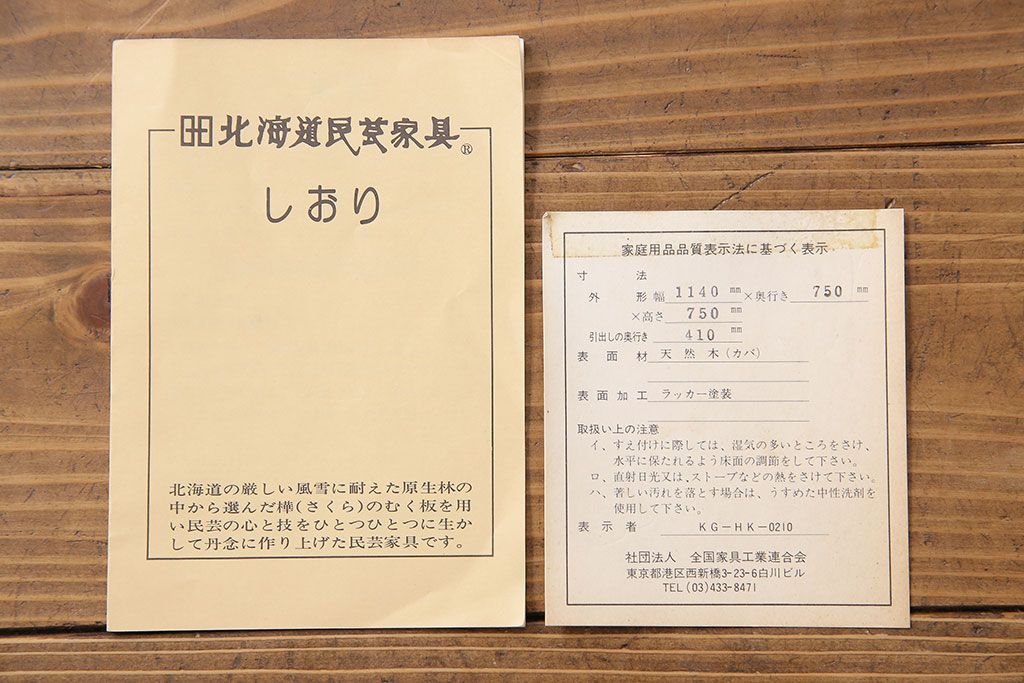 北海道民芸家具®
しおり
北海道の厳しい風雪に耐えた原生林の
中から選んだ樺(さくら)のむく板を用
い民芸の心と技をひとつひとつに生か
して丹念に作り上げた民芸家具です。
家庭用品品質表示法に基づく表示
寸法
外形 幅 1140 mm ×奥行き 750 mm
×高さ 750 mm
引出しの奥行き 410 mm
表面材 天然木(カバ)
表面加工 ラッカー塗装
取扱い上の注意
イ、すえ付けに際しては、湿気の多いところをさけ、
水平に保たれるよう床面の調節をして下さい。
ロ、直射日光又は、ストーブなどの熱をさけて下さい。
ハ、著しい汚れを落とす場合は、うすめた中性洗剤を
使用して下さい。
表示者 KG-HK-0210
社団法人 全国家具工業連合会
東京都港区西新橋3-23-6白川ビル
TEL(03)433-8471